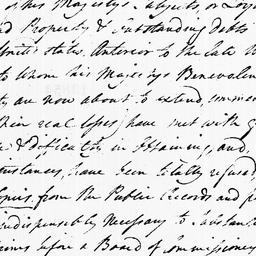 of His Majestys Subjects or Loy
nd Property & Outstanding Debts
United States, Anterior to the late W
to Whom his Majestys Benevolen
ty are now about to extend, commen
their real losses, have met with g
e & dificulty in Attaining, and,
stances, have been totally refused,
Copies, from the Public Records and p
indispensibly Necessary to Substan
aims before a Board of Commissioners